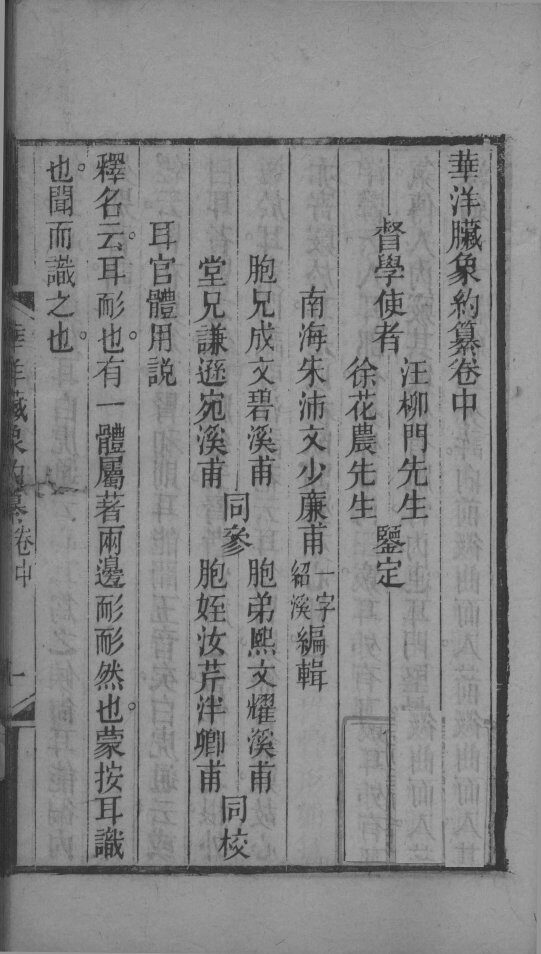 華洋臟象約纂卷中
督學使者 汪柳門先生 徐花農先生 鑒定
南海朱沛文少廉甫 一字紹溪 編輯
胞兄成文碧溪甫 堂兄謙遜宛溪甫 同參 胞弟熙文耀溪甫 胞姪汝芹泮卿甫 同校
耳官體用說
釋名云。耳耏也。有一體屬著兩邊耏耏然也。蒙按耳識
也。聞而識之也
華洋藏象約纂卷中 一